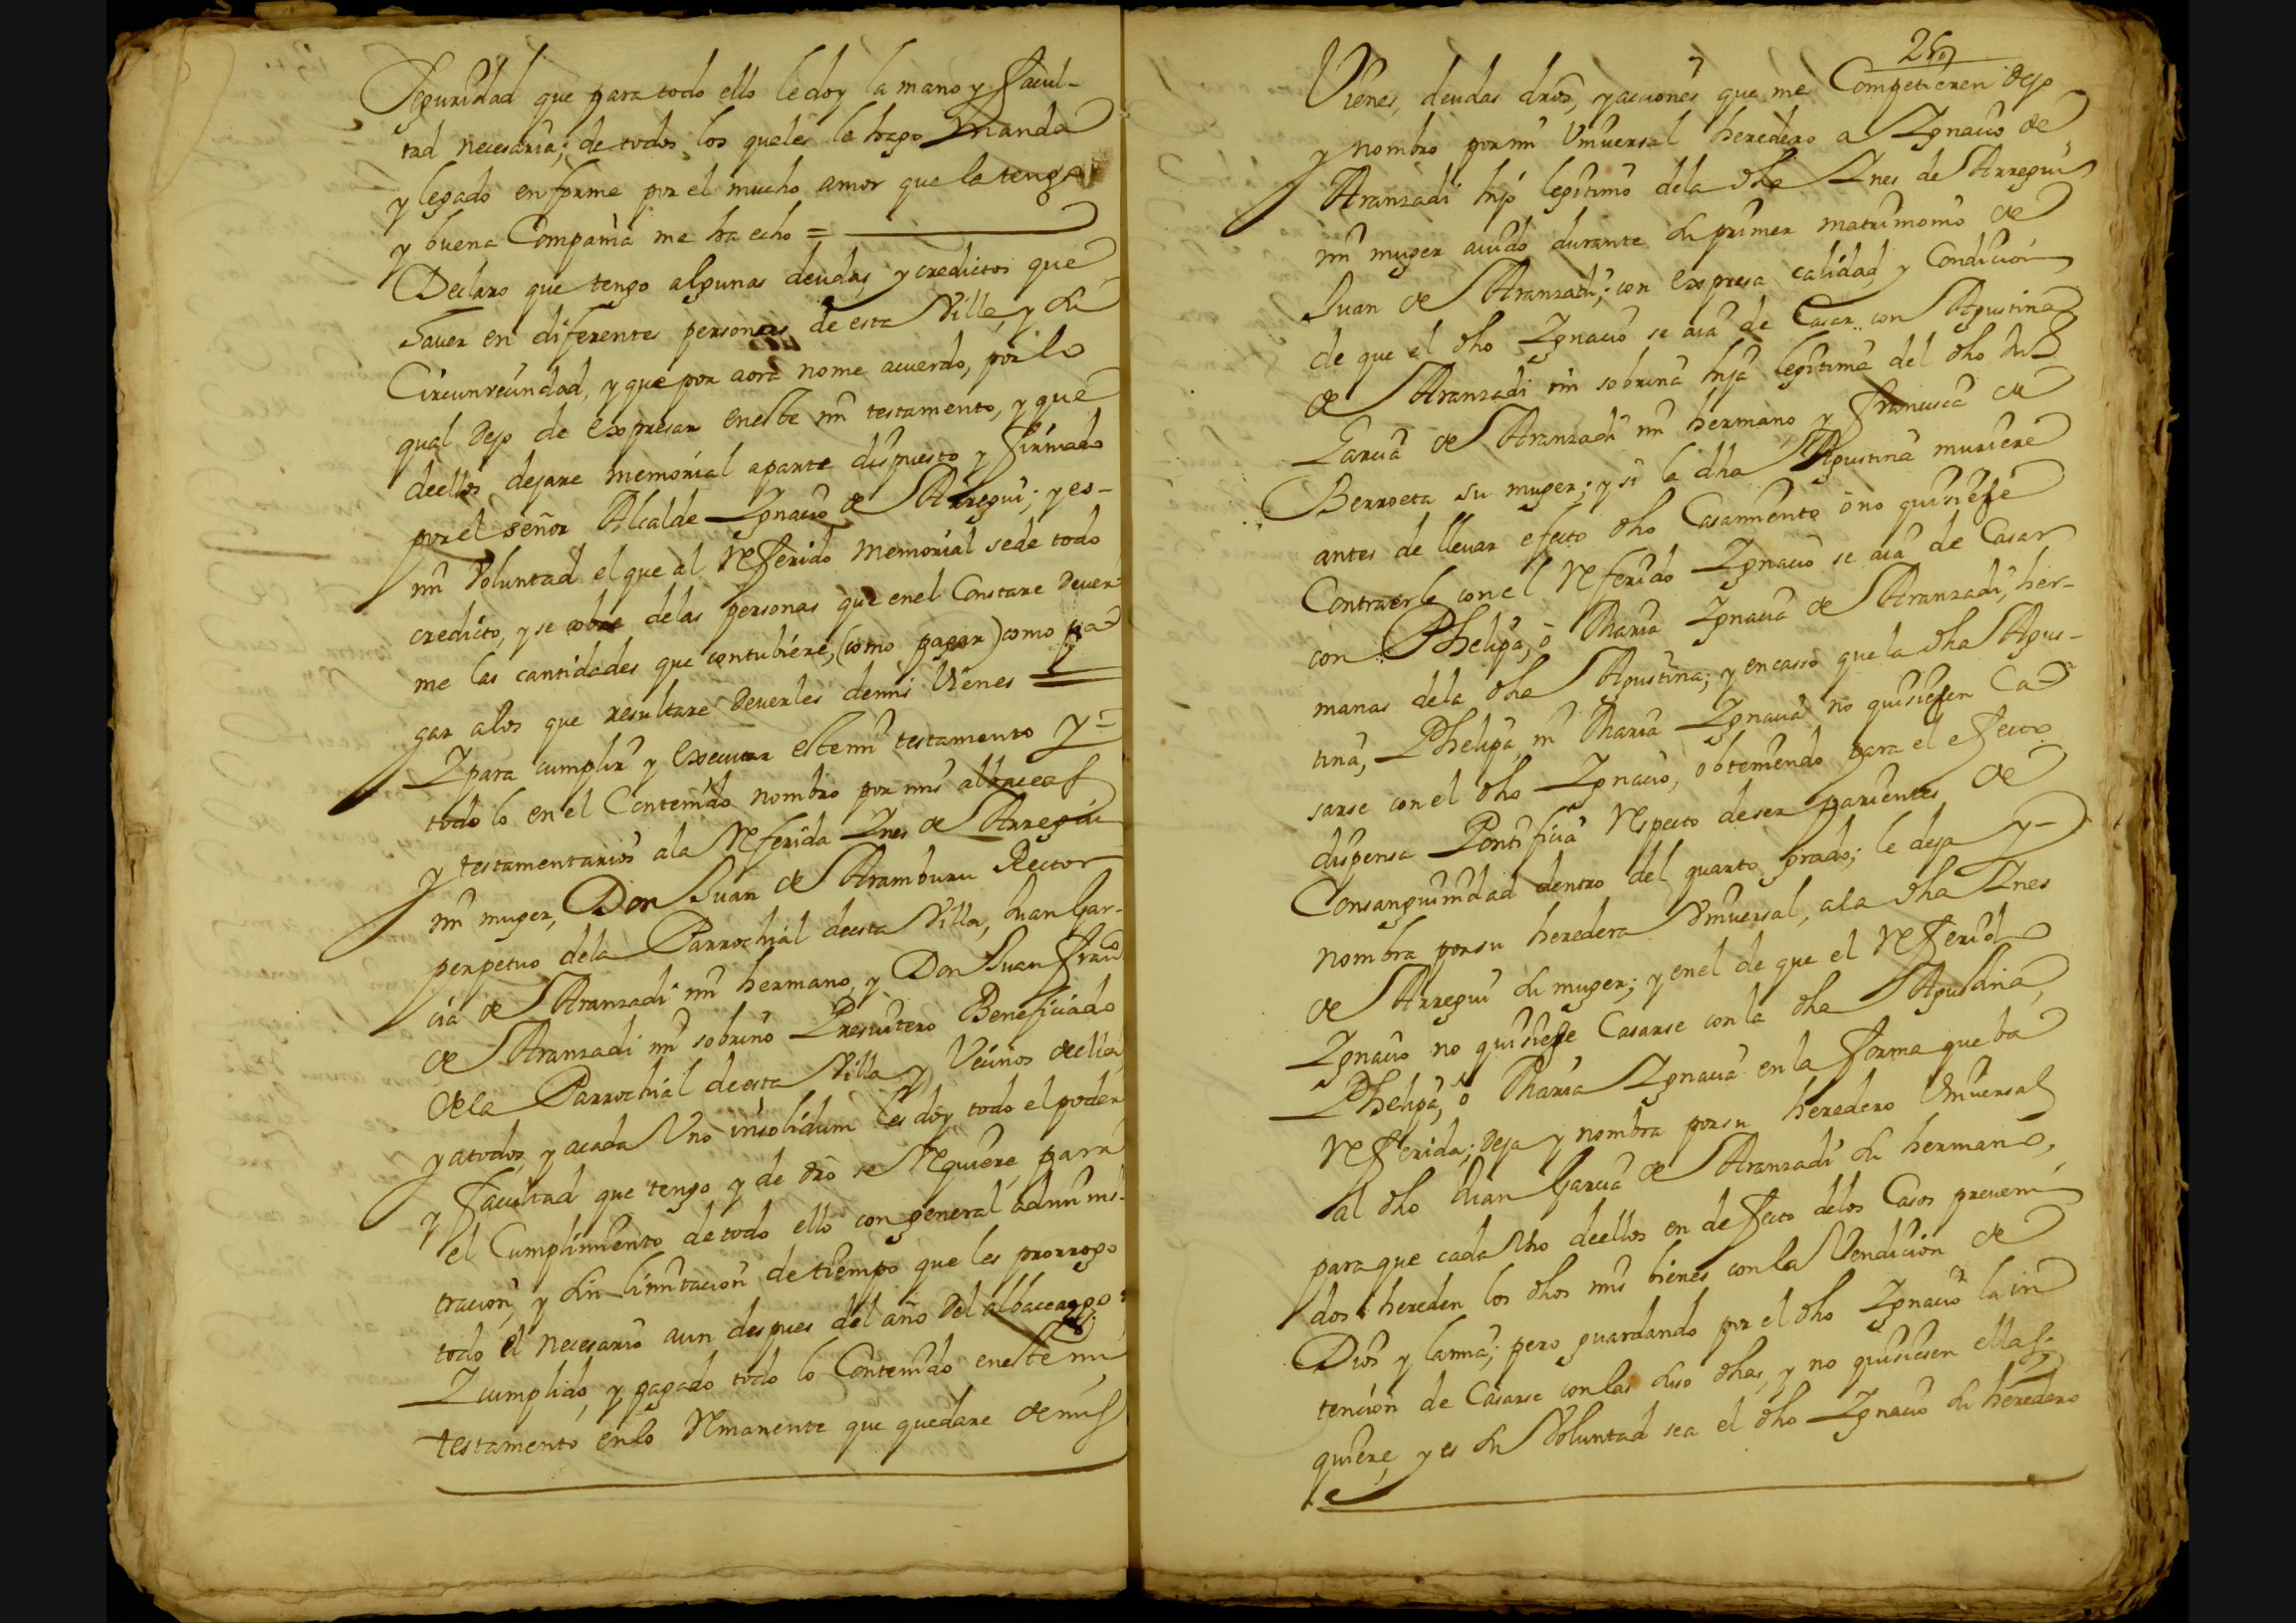 Seguridad que para todo ello le doy la mano y facul-
tad necesaria; de todos los quales le hago manda
y legado en forme por el mucho amor que la tengo
y buena Compañia me ha echo =
Declaro que tengo algunas deudas, y credictos que
hauer en diferentes personas de esta Villa, y su
Circunvecindad, y que por aora no me acuerdo, por lo
qual dejo de expresar en este mi testamento, y que
de ellos dejare memorial aparte dispuesto y firmado
por el señor Alcalde Ignacio de Arregui; y es-
mi Voluntad el que al referido memorial se de todo
credicto, y se cobre delas personas que en el Constare deuer
me las cantidades que contubiere, (como pagar) como pa
gar alos que resultare deuerles de mis Vienes =
I para cumplir y executar este mi testamento y-
todo lo en el Contenido nombro por mis albaceas
y testamentarios ala referida Ines de Arregui
mi muger, Don Juan de Aramburu Rector
perpetuo dela Parrochial de esta Villa, Juan Gar-
cia de Aranzadi mi hermano, y Don Juan franco
de Aranzadi mi sobrino Presuitero Beneficiado
dela Parrochial de esta Villa y Vecinos de ella,
y atodos, y acada Vno insolidum les doy todo el poder
y facultad que tengo y de dro se requiere, para
el Cumplimiento de todo ello con general adminis-
tracion, y sin limitacion de tiempo que les prorrogo
todo el necesario aun despues del año del albaceazgo:
I cumplido, y pagado todo lo Contenido en este mi
testamento en lo remanente que quedare de mis
Vienes, deudas dros, y acciones que me Competieren dejo
y nombro por mi Vniuersal heredero a Ignacio de
Aranzadi hijo legitimo dela dha Ines de Arregui
mi muger auido durante su primer matrimonio de
Juan de Aranzadi; con expresa calidad, y Condicion
de que el dho Ignacio se aia de Casar con Agustina
de Aranzadi mi sobrina hija legitima del dho Jun
Garcia de Aranzadi mi hermano y francisca de
Berroeta su muger; y si la dha Agustina muriere
antes de lleuar efecto dho Casamiento ó no quisiese
Contraerle con el referido Ignacio se aia de Casar
con Phelipa, ó Maria Ignacia de Aranzadi, her-
manas dela dha Agustina; y en casso que la dha Agus-
tina, Phelipa, ni Maria Ignacia no quisiesen Ca
sarse con el dho Ignacio, obteniendo para el efecto
dispensa Pontificia respecto de ser parientes de
Consanguinidad dentro del quarto grado; le deja y-
nombra por su heredera Vniuersal, ala dha Ines
de Arregui su muger; y en el de que el referido
Ignacio no quisiese Casarse con la dha Agustina,
Phelipa, ó Maria Ignacia en la forma que ba
referida; deja y nombra por su heredero Vniuersal
al dho Juan Garcia de Aranzadi su hermano,
para que cada Vno de ellos en defecto delos Casos preueni
dos hereden los dhos mis bienes con la Vendicion de
Dios y la mia; pero guardando por el dho Ignacio la in
tencion de Casarse con las suso dhas, y no quisiesen ellas
quiere, y es su Voluntad sea el dho Ignacio su heredero